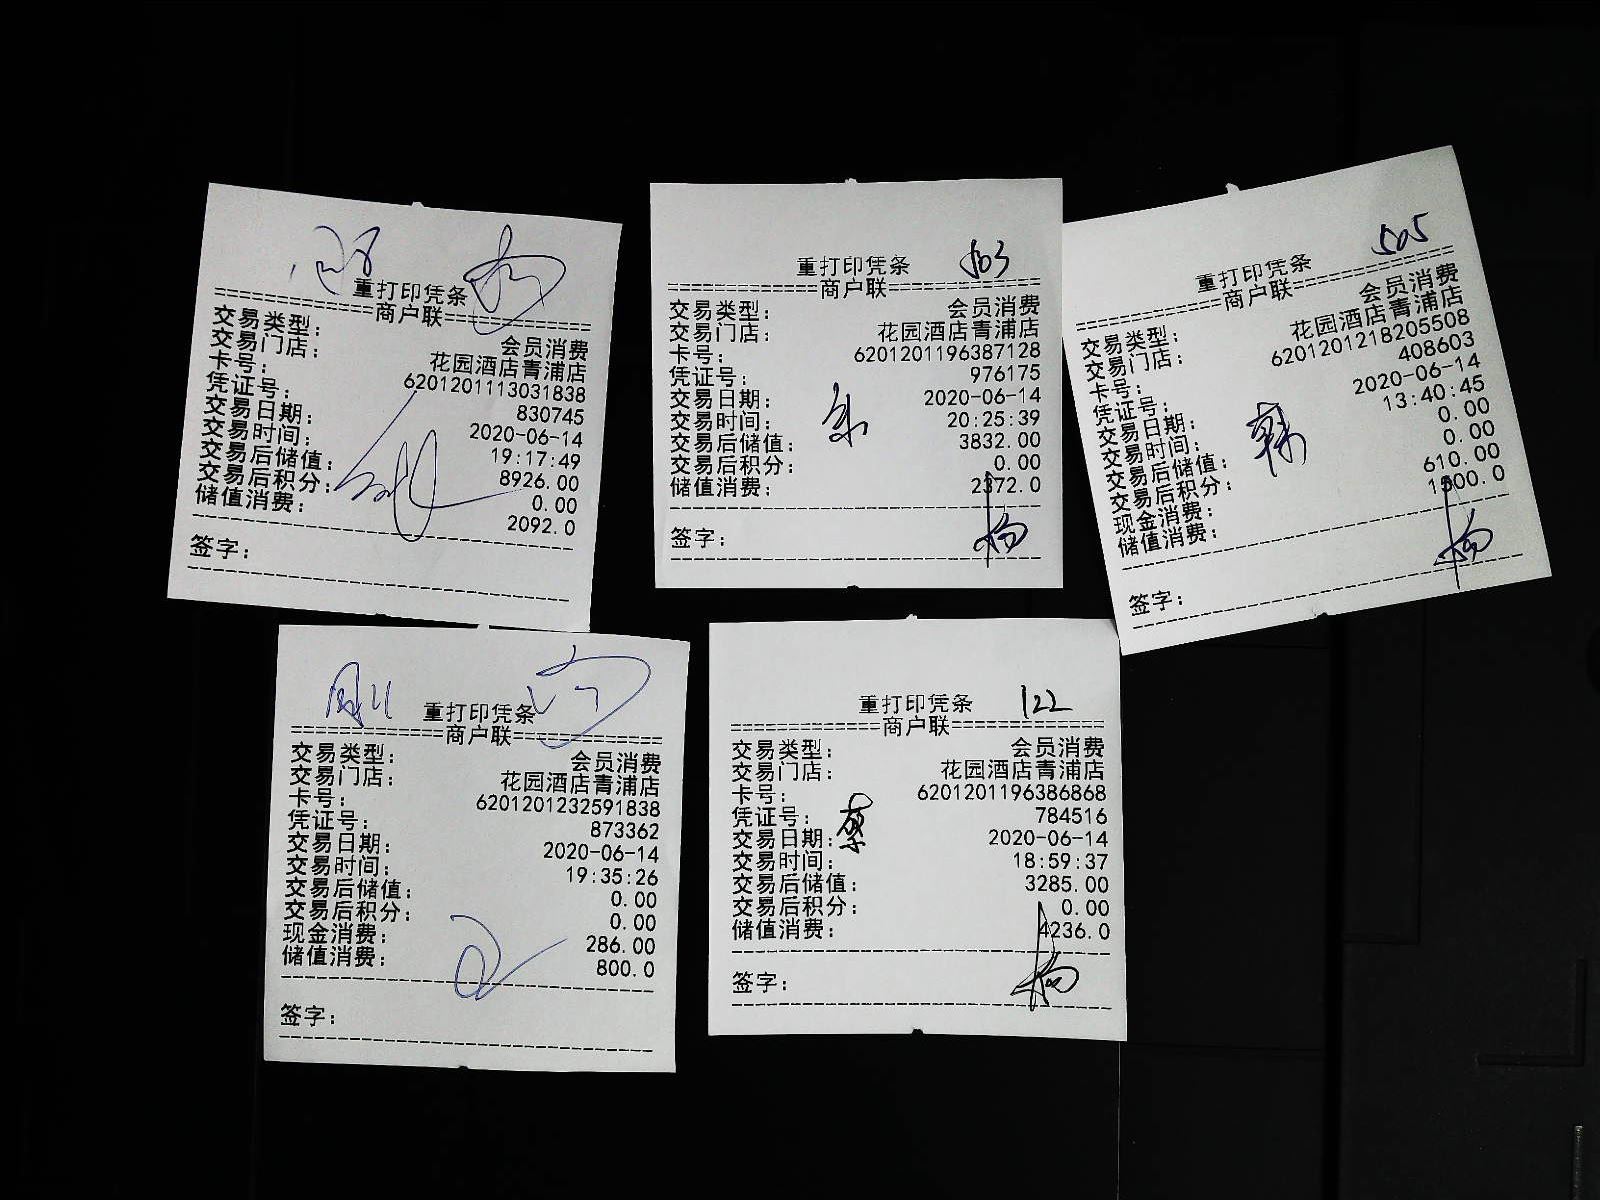 重打印凭条
商户联
交易类型: 会员消费
交易门店: 花园酒店青浦店
卡号: 6201201113031838
凭证号: 830745
交易日期: 2020-06-14
交易时间: 19:17:49
交易后储值: 8926.00
交易后积分: 0.00
储值消费: 2092.0
签字:
503
重打印凭条
商户联
交易类型: 会员消费
交易门店: 花园酒店青浦店
卡号: 6201201196387128
凭证号: 976175
交易日期: 2020-06-14
交易时间: 20:25:39
交易后储值: 3832.00
交易后积分: 0.00
储值消费: 2372.0
签字:
杨
505
重打印凭条
商户联
交易类型: 会员消费
交易门店: 花园酒店青浦店
卡号: 6201201218205508
凭证号: 408603
交易日期: 2020-06-14
交易时间: 13:40:45
交易后储值: 0.00
交易后积分: 0.00
现金消费: 610.00
储值消费: 1500.0
韩
签字:
杨
重打印凭条
商户联
交易类型: 会员消费
交易门店: 花园酒店青浦店
卡号: 6201201232591838
凭证号: 873362
交易日期: 2020-06-14
交易时间: 19:35:26
交易后储值: 0.00
交易后积分: 0.00
现金消费: 286.00
储值消费: 800.0
签字:
重打印凭条 122
商户联
交易类型: 会员消费
交易门店: 花园酒店青浦店
卡号: 6201201196386868
凭证号: 784516
交易日期: 2020-06-14
交易时间: 18:59:37
交易后储值: 3285.00
交易后积分: 0.00
储值消费: 4236.0
签字:
杨